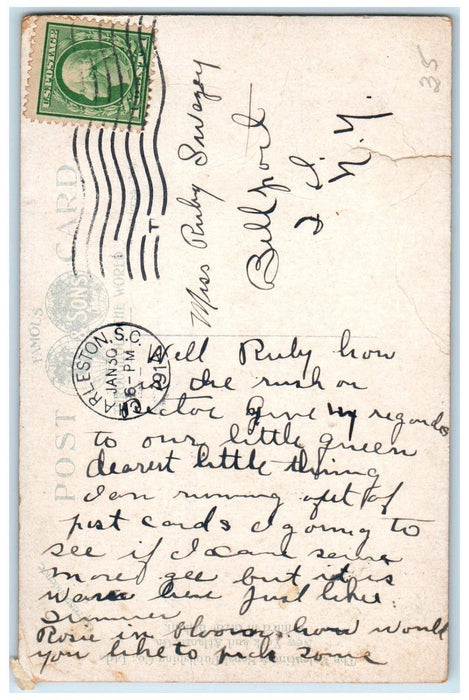 U.S. POSTAGE
CHARLESTON, S.C.
JAN 30
6-PM
191
35
Miss Ruby Swazey
Bellport
L I.
N.Y.
FAMOUS
POST CARD
SONS
THE WORLD
Well Ruby how
is the rush on
give my regards
to our little queen
dearest little thing
I am running out of
post cards I going to
see if I can
more gee but it is
warm here Just like
summer
Rosie in bloom how would
you like to pick some
The Valentine & Sons' Publishing Co., Ltd.
New York